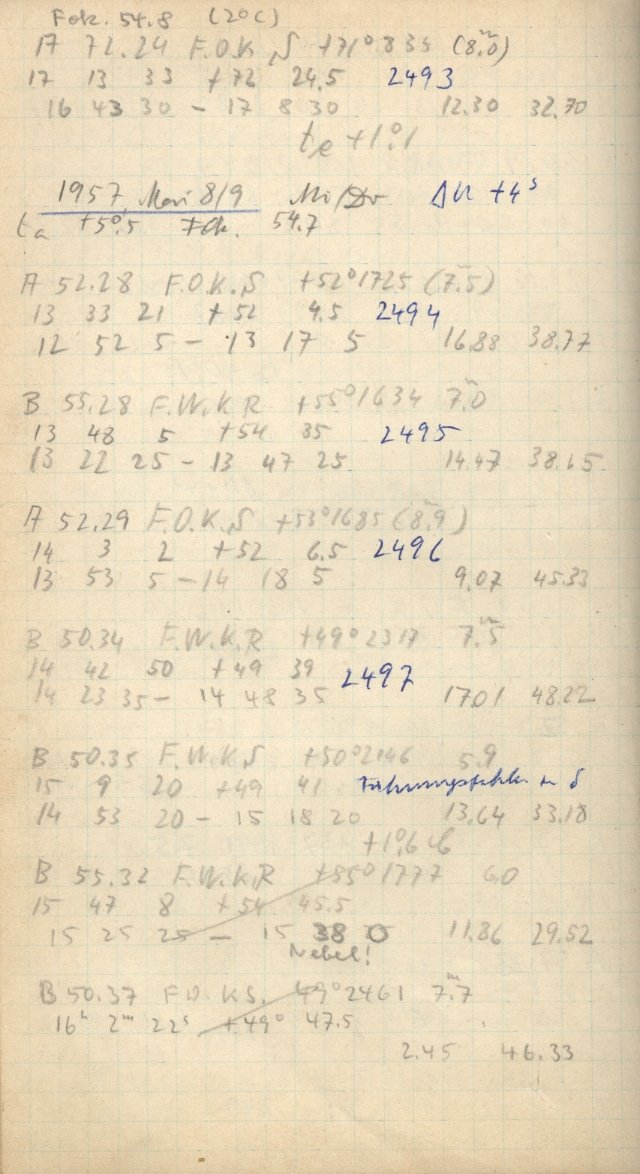 Fok. 54.8 (20C)
A 72.24 F.O.K S +71°835 (8.ᵐ0)
17 13 33 +72 24.5 2493
16 43 30 - 17 8 30 12.30 32.70
te +1°.1
1957 Mai 8/9 Mi/Do ΔU +4ˢ
ta +5°.5 Fok. 54.7
A 52.28 F.O.K.S +52°1725 (7.ᵐ5)
13 33 21 +52 4.5 2494
12 52 5 - 13 17 5 16.88 38.77
B 55.28 F.W.K R +55°1634 7.ᵐ0
13 48 5 +54 35 2495
13 22 25 - 13 47 25 14.47 38.65
A 52.29 F.O.K.S +53°1685 (8.ᵐ9)
14 3 2 +52 6.5 2496
13 53 5 - 14 18 5 9.07 45.33
B 50.34 F.W.K.R +49°2317 7.ᵐ5
14 42 50 +49 39 2497
14 23 35 - 14 48 35 17.01 48.22
B 50.35 F.W.K S +50°2146 5.9
15 9 20 +49 41 Führungsfehler in δ
14 53 20 - 15 18 20 13.64 33.18
+1°.6
B 55.32 F.W.K.R +55°1777 6.0
15 47 8 +54 45.5
15 25 25 - 15 38 0 11.86 29.52
Nebel!
B 50.37 F.O.KS. 49°2461 7.ᵐ7
16ʰ 2ᵐ 22ˢ +49° 47.5
2.45 46.33